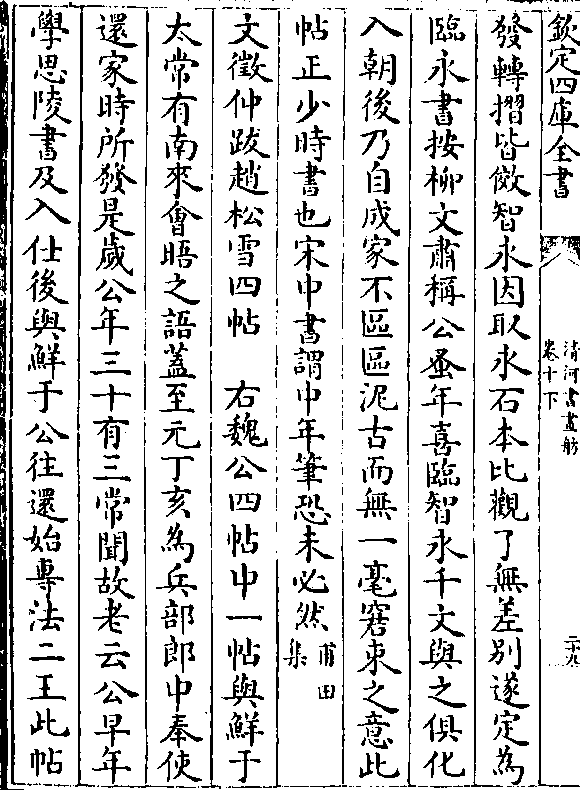 欽定四庫全書
清河書畫舫
卷十下
二十九
發轉摺皆傚智永因取永石本比觀了無差别遂定為
臨永書按柳文肅稱公蚤年喜臨智永千文與之俱化
入朝後乃自成家不區區泥古而無一毫窘束之意此
帖正少時書也宋中書謂中年筆恐未必然甫田集
文徵仲跋趙松雪四帖　右魏公四帖中一帖與鮮于
太常有南來會晤之語蓋至元丁亥為兵部郎中奉使
還家時所發是歲公年三十有三常聞故老云公早年
學思陵書及入仕後與鮮于公往還始專法二王此帖